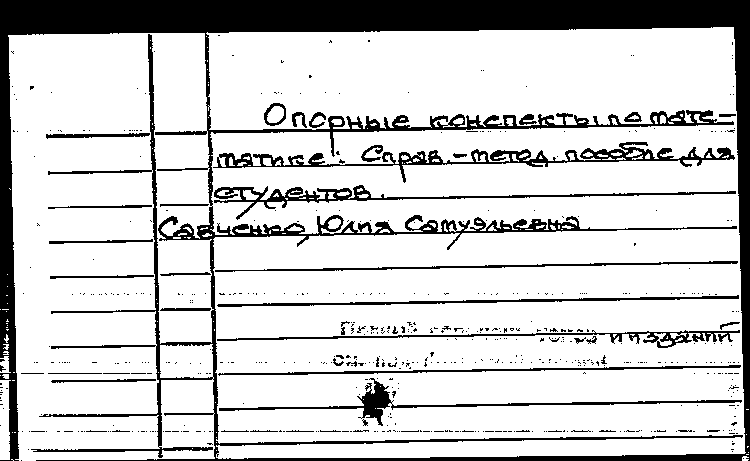 Опорные конспекты по мате-
матике: Справ.-метод. пособие для
студентов.
Савченко, Юлия Самуэльевна
и изданий